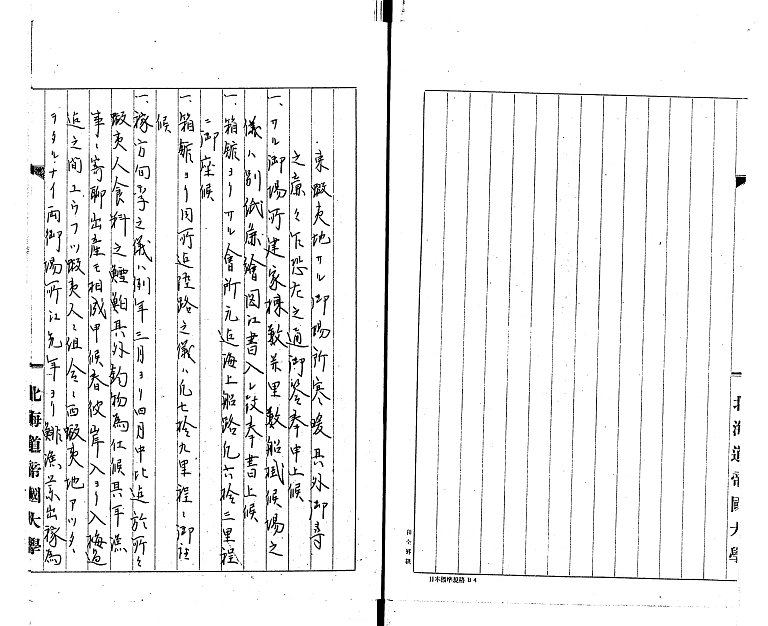 東蝦夷地サル御場所寒暖其外御尋
之意々乍恐左之通御答奉申上候
一、サル御場所建家棟数并里数船掛候場之
儀ハ別紙麁絵図江書入レ仕奉書上候
一、箱館ヨリサル会所元迄海上船路凡六拾三里程
ニ御座候
一、箱館ヨリ同所迄陸路之儀ハ凡七拾九里程ニ御座
候
一、稼方旬季之儀ハ例年三月ヨリ四月中比迄於所々
蝦夷人食料之鱈鮊其外釣物為仕候其年漁
事ニ寄聊出産モ相成申候春彼岸入ヨリ入梅過
迄之間ユウフツ蝦夷人ニ組合ニ西蝦夷地アツタ、
ヲタルナイ両御場所江先年ヨリ鯡漁業出稼為
北海道帝國大學
北海道帝國大學
日本標準規格 B4